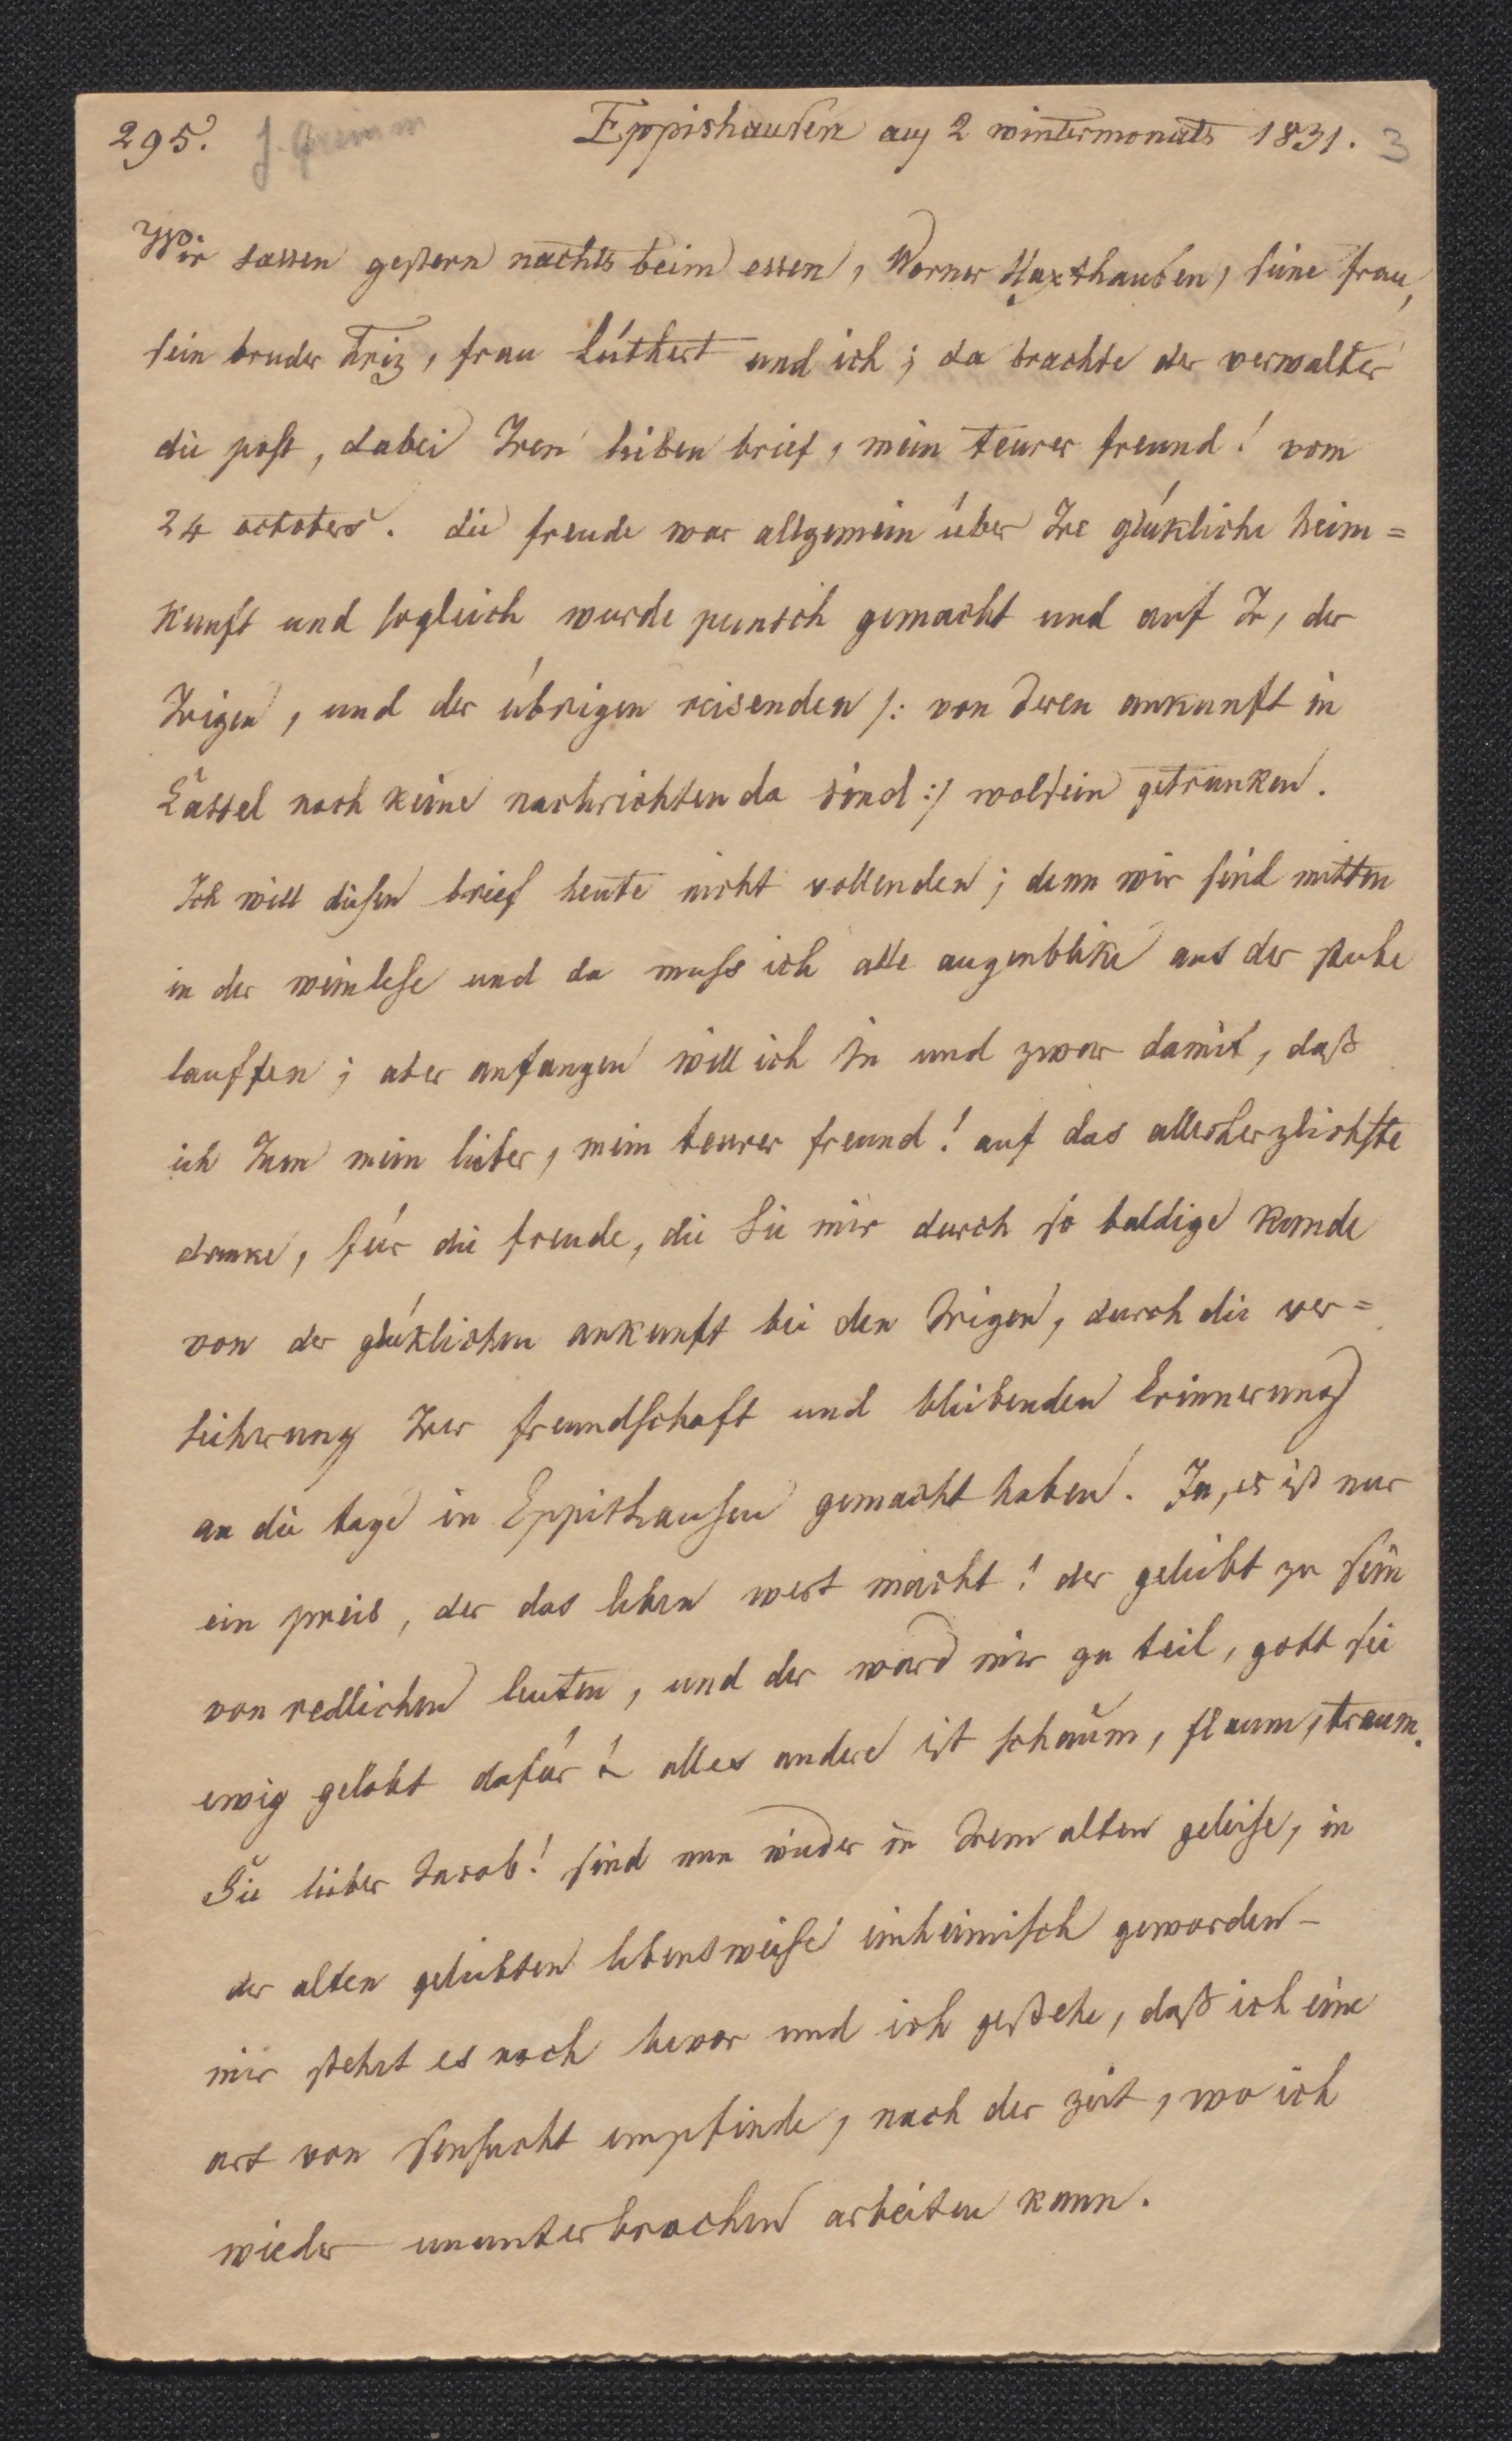 295. J. Grimm Eppishausen auf 2 wintermonats 1831. 3
Wir sassen gestern nachts beim essen, Werner Haxthausen, seine frau,
sein bruder Friz, frau Luthert und ich; da brachte der verwalter
die post, dabei Iren lieben brief, mein teurer freund! vom
24 octobers. die freude war allgemein über Ire glükliche heim=
kunft und sogleich wurde punsch gemacht und auf Ir, der
Irigen, und der übrigen reisenden /: von deren ankunft in
Cassel noch keine nachrichten da sind :/ wolsein getrunken.
Ich will diesen brief heute nicht vollenden; denn wir sind mitten
in der weinlese und da muss ich alle augenblike aus der stube
lauffen; aber anfangen will ich in und zwar damit, daß
ich Inen mein lieber, mein teurer freund! auf das allerherzlichste
danke, für die freude, die Sie mir durch so baldige kunde
von der glüklichen ankunft bei den Irigen, durch die ver=
sichrung Irer freundschaft und bleibenden Erinnerung
an die tage in Eppishausen gemacht haben. Ja, es ist nur
ein preis, der das leben wert macht! der geliebt zu sein
von redlichen leuten, und der ward mir zu teil, gott sei
ewig gelobt dafür! alles andere ist schaum, flaum, traum.
Sie lieber Jacob! sind nun wieder in Irem alten geleise, in
der alten geliebten lebensweise einheimisch geworden –
mir stehet es noch bevor und ich gestehe, daß ich eine
art von sensucht empfinde, nach der zeit, wo ich
wieder ununterbrochen arbeiten kann.